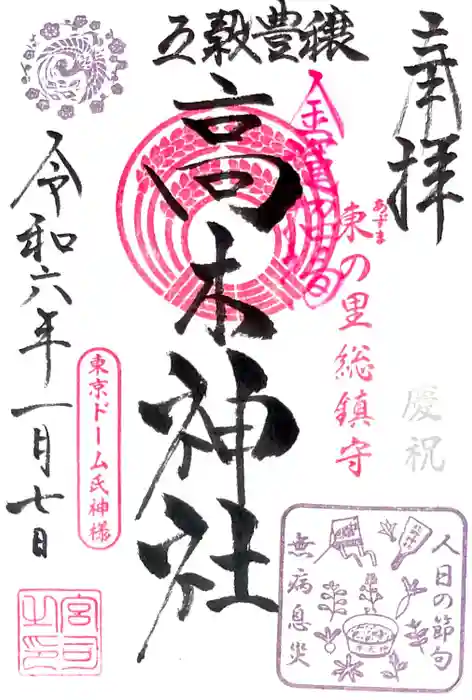 奉拝
慶祝
あずま
東の里総鎮守
五穀豊穣
高木神社
令和六年一月七日
東京ドーム氏神様
宮司
之印
人日の節句
無病息災